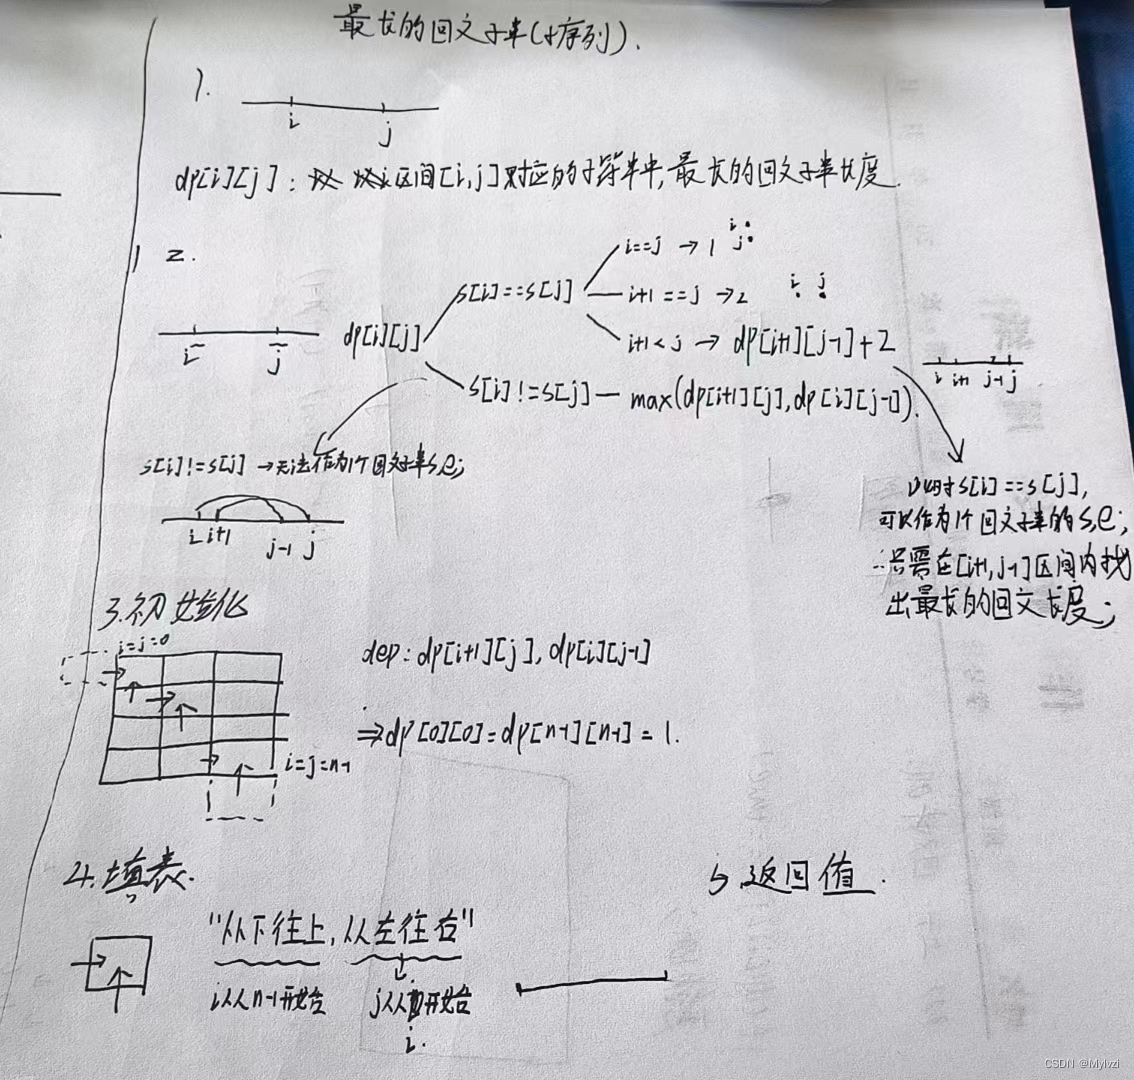 最长的回文子串(子序列).
1.
i j
dp[i][j]: 区间[i,j]对应的子字符串中,最长的回文子串长度.
2.
i j
dp[i][j]
s[i]==s[j]
i==j → 1
i
j
i+1 ==j →2
i j
i+1<j → dp[i+1][j-1]+2
i i+1 j-1 j
s[i]!=s[j] — max(dp[i+1][j],dp[i][j-1]).
s[i]!=s[j] →无法作为1个回文子串s,e;
i i+1 j-1 j
此时s[i]==s[j],
可以作为1个回文子串的s,e;
∴只需在[i+1,j-1]区间内找
出最长的回文长度;
3.初始化
i=j=0
i=j=n-1
dep: dp[i+1][j],dp[i][j-1]
⇒dp[0][0]=dp[n-1][n-1]=1.
4.填表.
"从下往上,从左往右"
i从n-1开始
j从开始
i.
5.返回值.
CSDN @Mylvzi